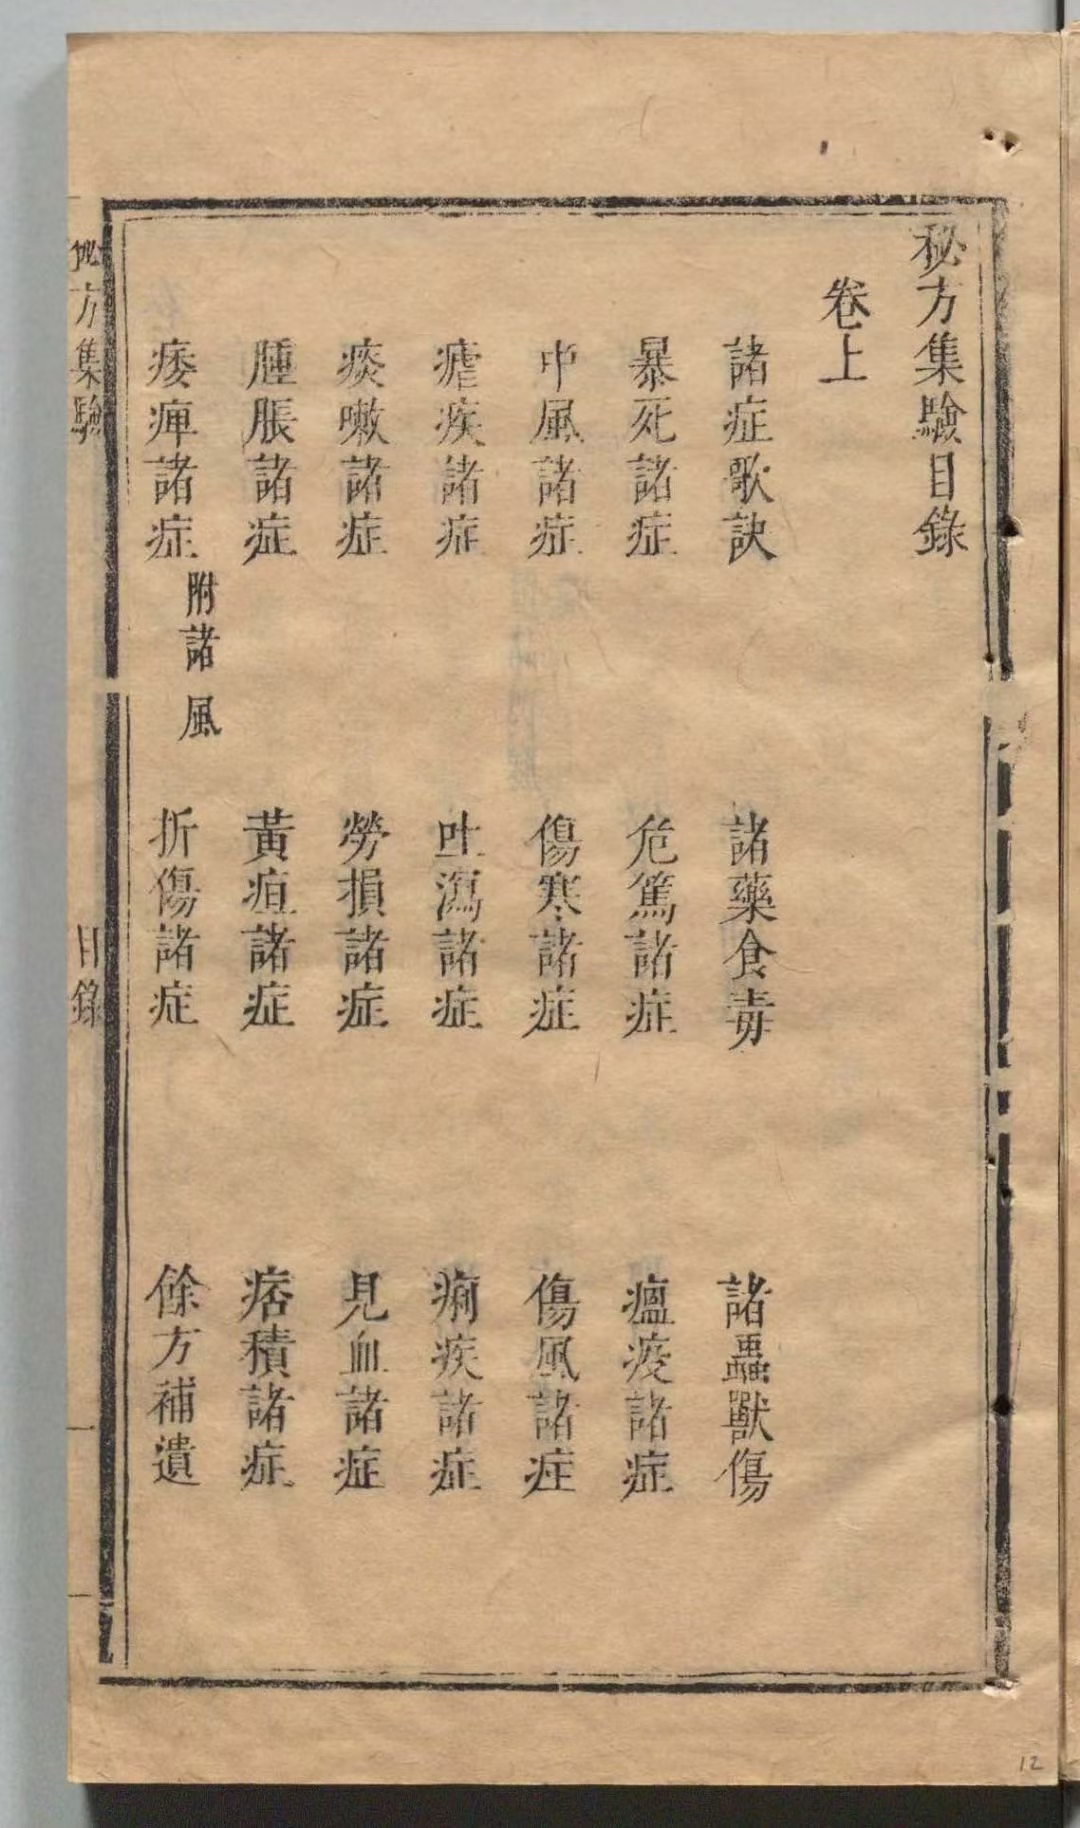 秘方集驗目錄
卷上
諸症歌訣　諸藥食毒　諸蟲獸傷
暴死諸症　危篤諸症　瘟疫諸症
中風諸症　傷寒諸症　傷風諸症
瘧疾諸症　吐瀉諸症　痢疾諸症
痰嗽諸症　勞損諸症　見血諸症
腫脹諸症　黃疸諸症　痞積諸症
痿痺諸症　附諸風　折傷諸症　餘方補遺
秘方集驗　目錄
12